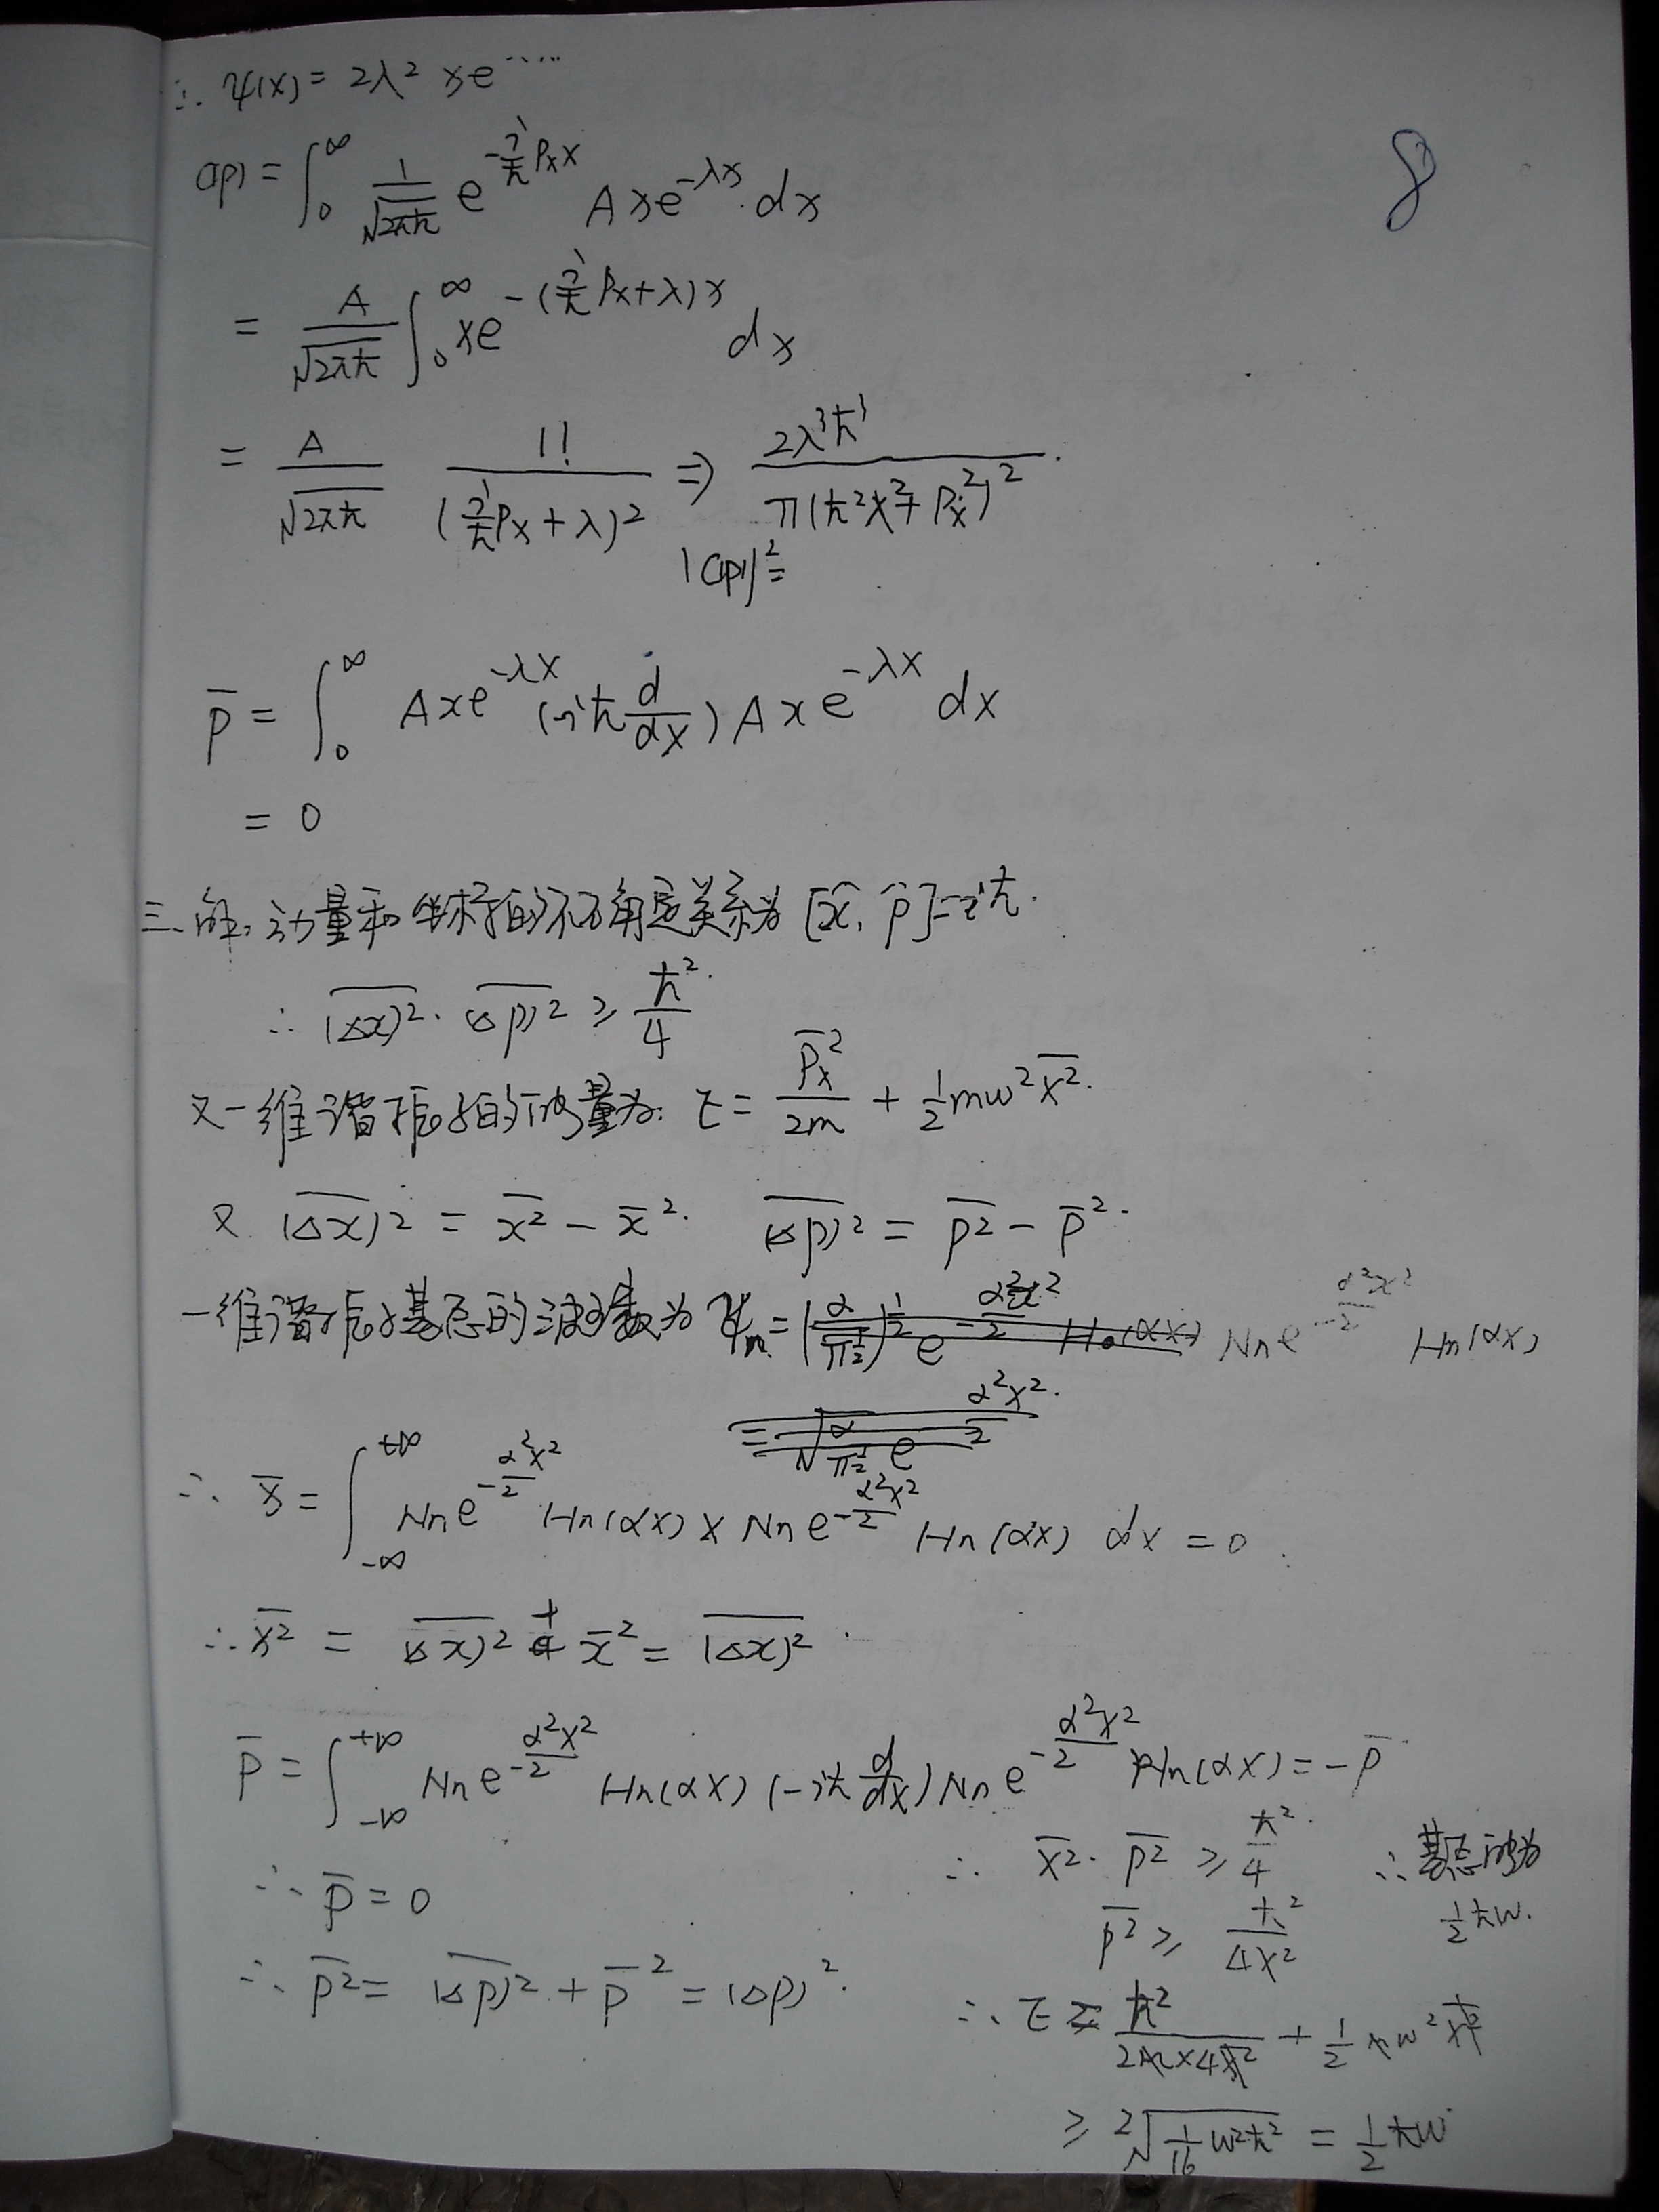 ∴ ψ(x) = 2λ² x e ·····
8
C(p) = ∫₀^∞ 1/√(2πħ) e^(-i/ħ Pₓx) A x e^(-λx) dx
= A/√(2πħ) ∫₀^∞ x e^(-(i/ħ Pₓ+λ)x) dx
= A/√(2πħ) 1!/(i/ħ Pₓ+λ)² ⇒ 2λ³ħ³/π(ħ²λ²+Pₓ²)²
|C(p)|² =
p̄ = ∫₀^∞ A x e^(-λx) (-iħ d/dx) A x e^(-λx) dx
= 0
三、解: 动量和坐标的不确定关系为 [x̂, p̂]=iħ.
∴ \overline{(Δx)²} · \overline{(Δp)²} ≥ ħ²/4
又一维谐振子的能量为: E = \overline{Pₓ²}/2m + 1/2 mω² \overline{x²}.
又 \overline{(Δx)²} = \overline{x²} - x̄². \overline{(Δp)²} = \overline{p²} - p̄².
一维谐振子基态的波函数为 ψₙ = Nₙ e^(-α²x²/2) Hₙ(αx)
∴ x̄ = ∫_{-∞}^{+∞} Nₙ e^(-α²x²/2) Hₙ(αx) x Nₙ e^(-α²x²/2) Hₙ(αx) dx = 0.
∴ \overline{x²} = \overline{(Δx)²} + x̄² = \overline{(Δx)²}.
p̄ = ∫_{-∞}^{+∞} Nₙ e^(-α²x²/2) Hₙ(αx) (-iħ d/dx) Nₙ e^(-α²x²/2) Hₙ(αx) = -p̄
∴ p̄ = 0
∴ \overline{p²} = \overline{(Δp)²} + p̄² = (Δp)².
∴ \overline{x²} · \overline{p²} ≥ ħ²/4
\overline{p²} ≥ ħ²/4x²
∴ E ≥ ħ²/(2m×4\overline{x²}) + 1/2 mω² \overline{x²}
≥ 2√(1/16 ω²ħ²) = 1/2 ħω
∴ 基态能为
1/2 ħω.